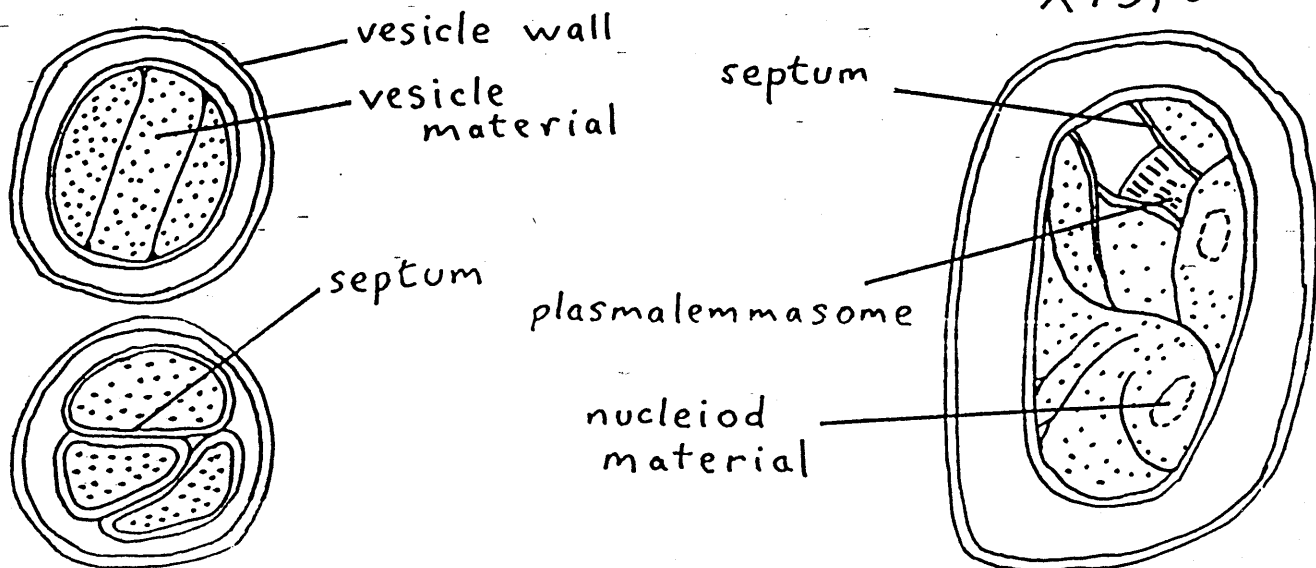 vesicle wall
vesicle
material
septum
septum
plasmalemmasome
nucleiod
material